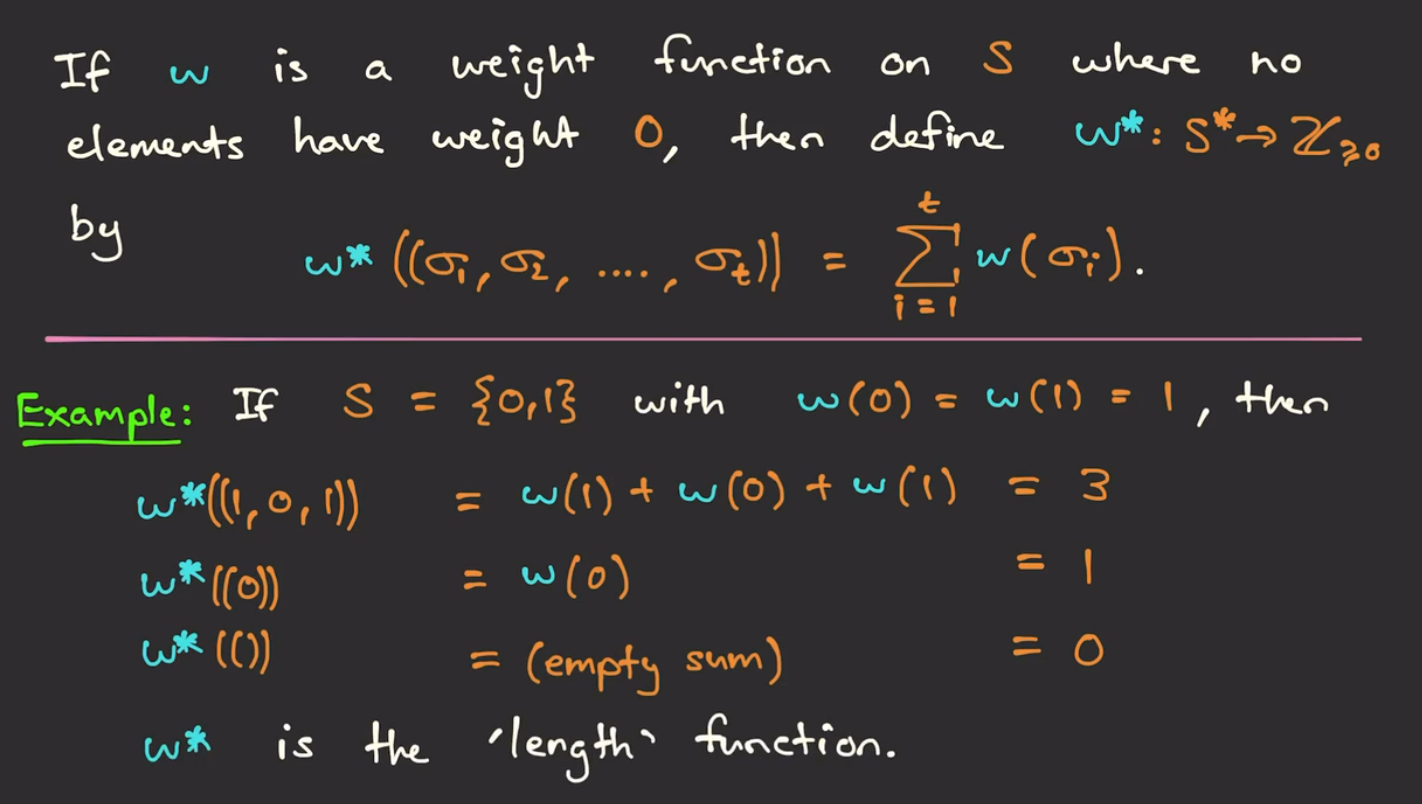 If w is a weight function on S where no
elements have weight 0, then define w*: S* → ℤ≥0
by
w*((σ₁, σ₂, ...., σₜ)) = ∑ᵢ₌₁ᵗ w(σᵢ).
Example: If S = {0,1} with w(0) = w(1) = 1, then
w*((1,0,1)) = w(1) + w(0) + w(1) = 3
w*((0)) = w(0) = 1
w*(()) = (empty sum) = 0
w* is the 'length' function.